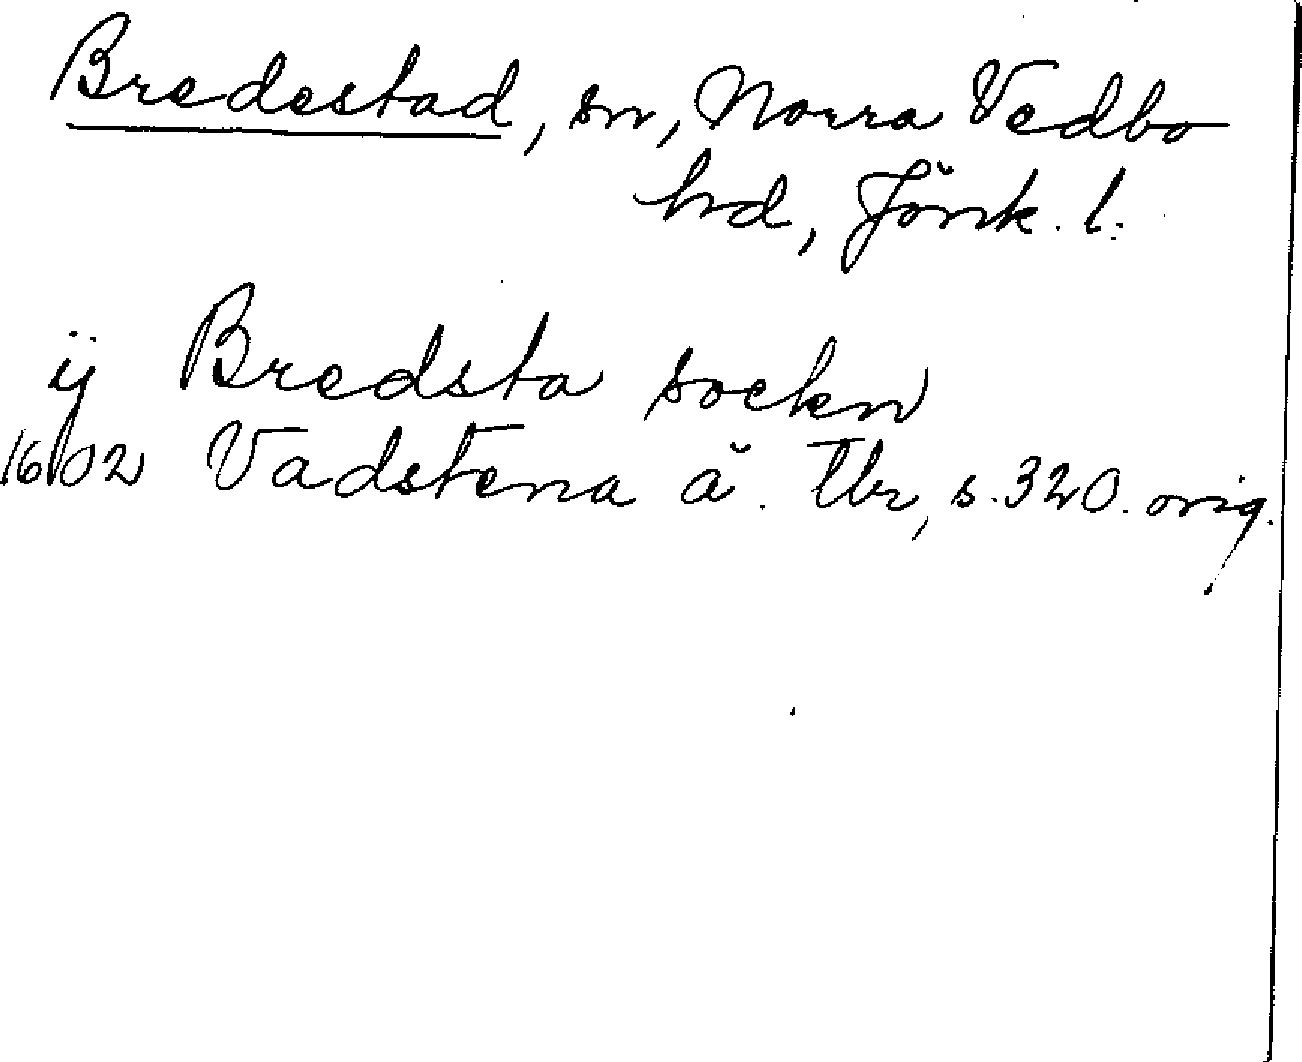 Bredestad, sn, Norra Vedbo
hd, Jönk. l.
ÿ Bredsta sockn
1602 Vadstena ä. Tbr, s. 320. orig.